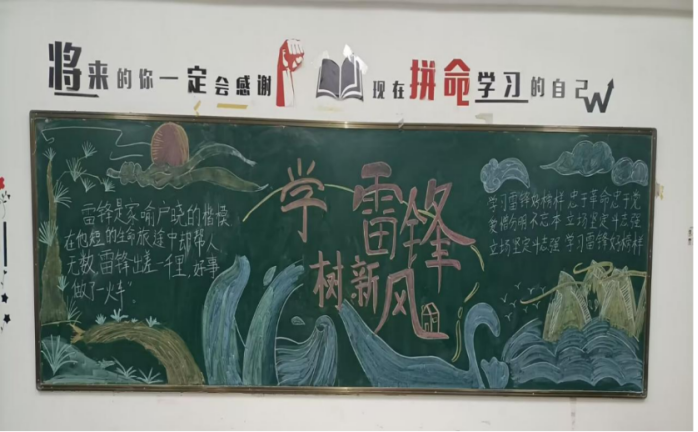 将来的你一定会感谢 现在拼命学习的自己
学雷锋
树新风
雷锋是家喻户晓的楷模
在他短的生命旅途中却帮人
无数,雷锋出差一千里,好事
做了一火车
学习雷锋好榜样 忠于革命忠于党
爱憎分明不忘本 立场坚定斗志强
立场坚定斗志强 学习雷锋好榜样